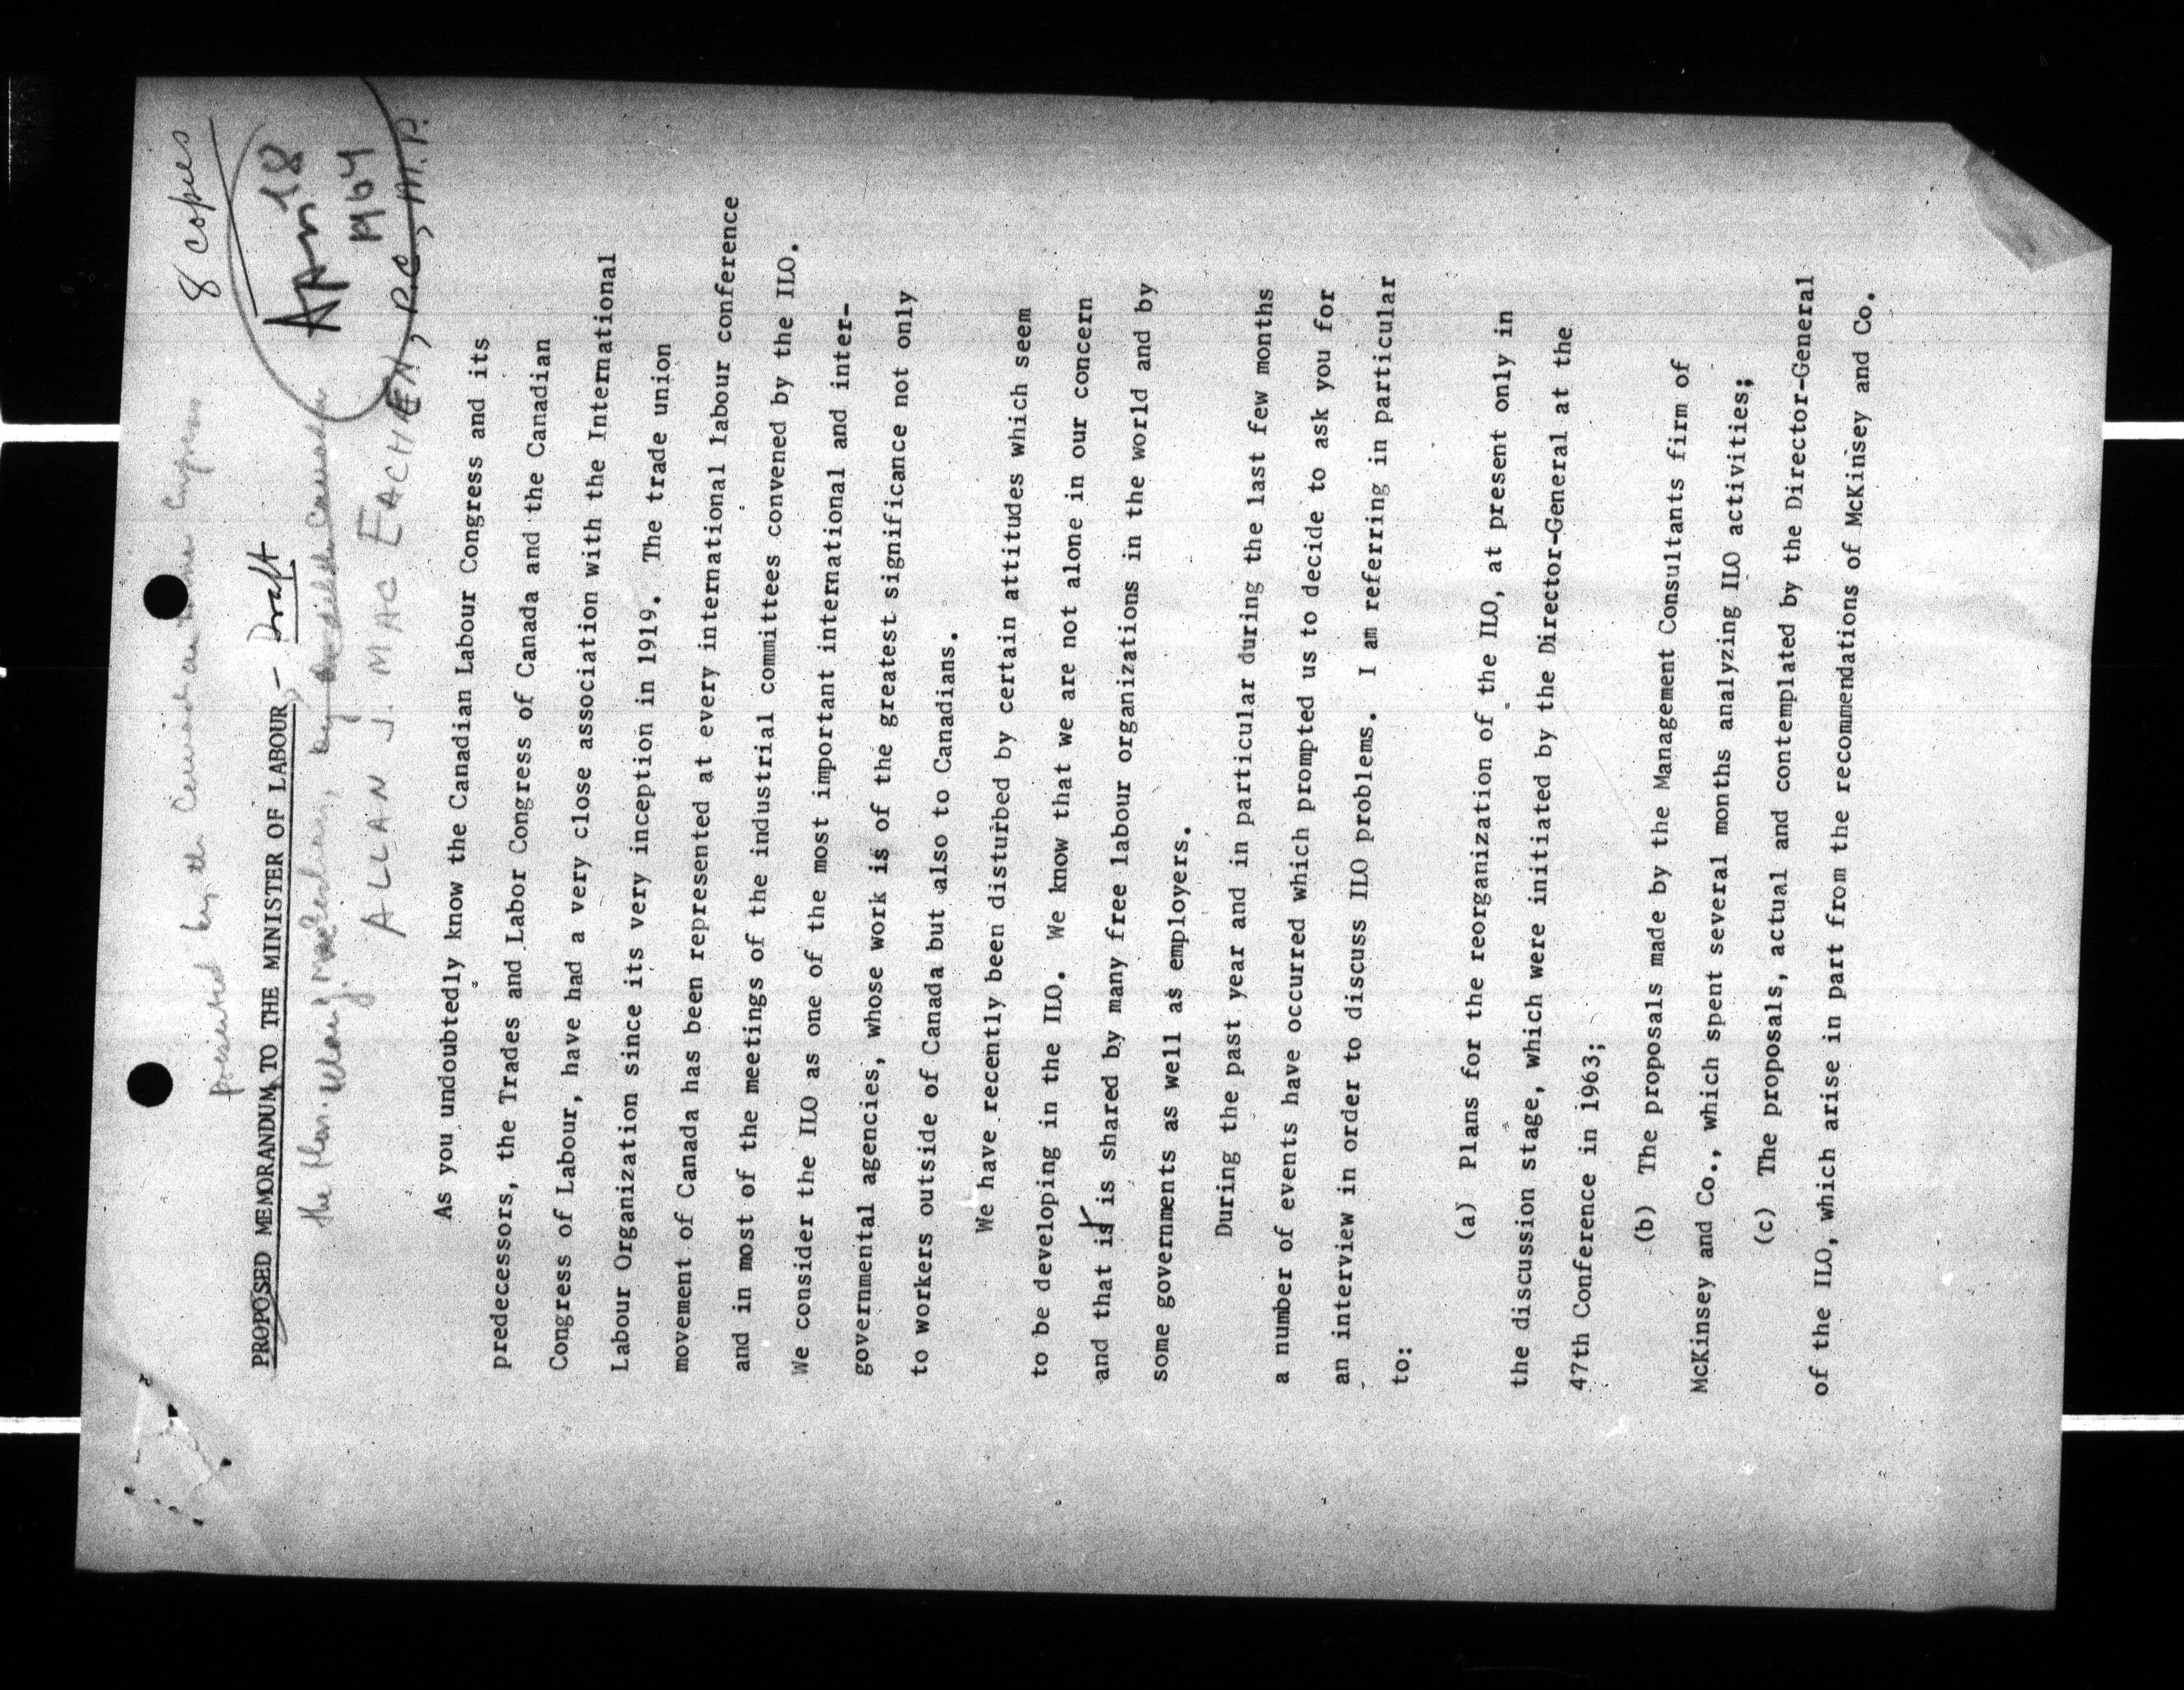 8 copies
presented by the Canadian Labour Congress
PROPOSED MEMORANDUM TO THE MINISTER OF LABOUR - Draft
Apr 18
1964
the Hon. MacEachen, by
ALLAN J. MAC EACHEN, P.C., M.P.
As you undoubtedly know the Canadian Labour Congress and its
predecessors, the Trades and Labor Congress of Canada and the Canadian
Congress of Labour, have had a very close association with the International
Labour Organization since its very inception in 1919. The trade union
movement of Canada has been represented at every international labour conference
and in most of the meetings of the industrial committees convened by the ILO.
We consider the ILO as one of the most important international and inter-
governmental agencies, whose work is of the greatest significance not only
to workers outside of Canada but also to Canadians.
We have recently been disturbed by certain attitudes which seem
to be developing in the ILO. We know that we are not alone in our concern
and that it is shared by many free labour organizations in the world and by
some governments as well as employers.
During the past year and in particular during the last few months
a number of events have occurred which prompted us to decide to ask you for
an interview in order to discuss ILO problems. I am referring in particular
to:
(a) Plans for the reorganization of the ILO, at present only in
the discussion stage, which were initiated by the Director-General at the
47th Conference in 1963;
(b) The proposals made by the Management Consultants firm of
McKinsey and Co., which spent several months analyzing ILO activities;
(c) The proposals, actual and contemplated by the Director-General
of the ILO, which arise in part from the recommendations of McKinsey and Co.